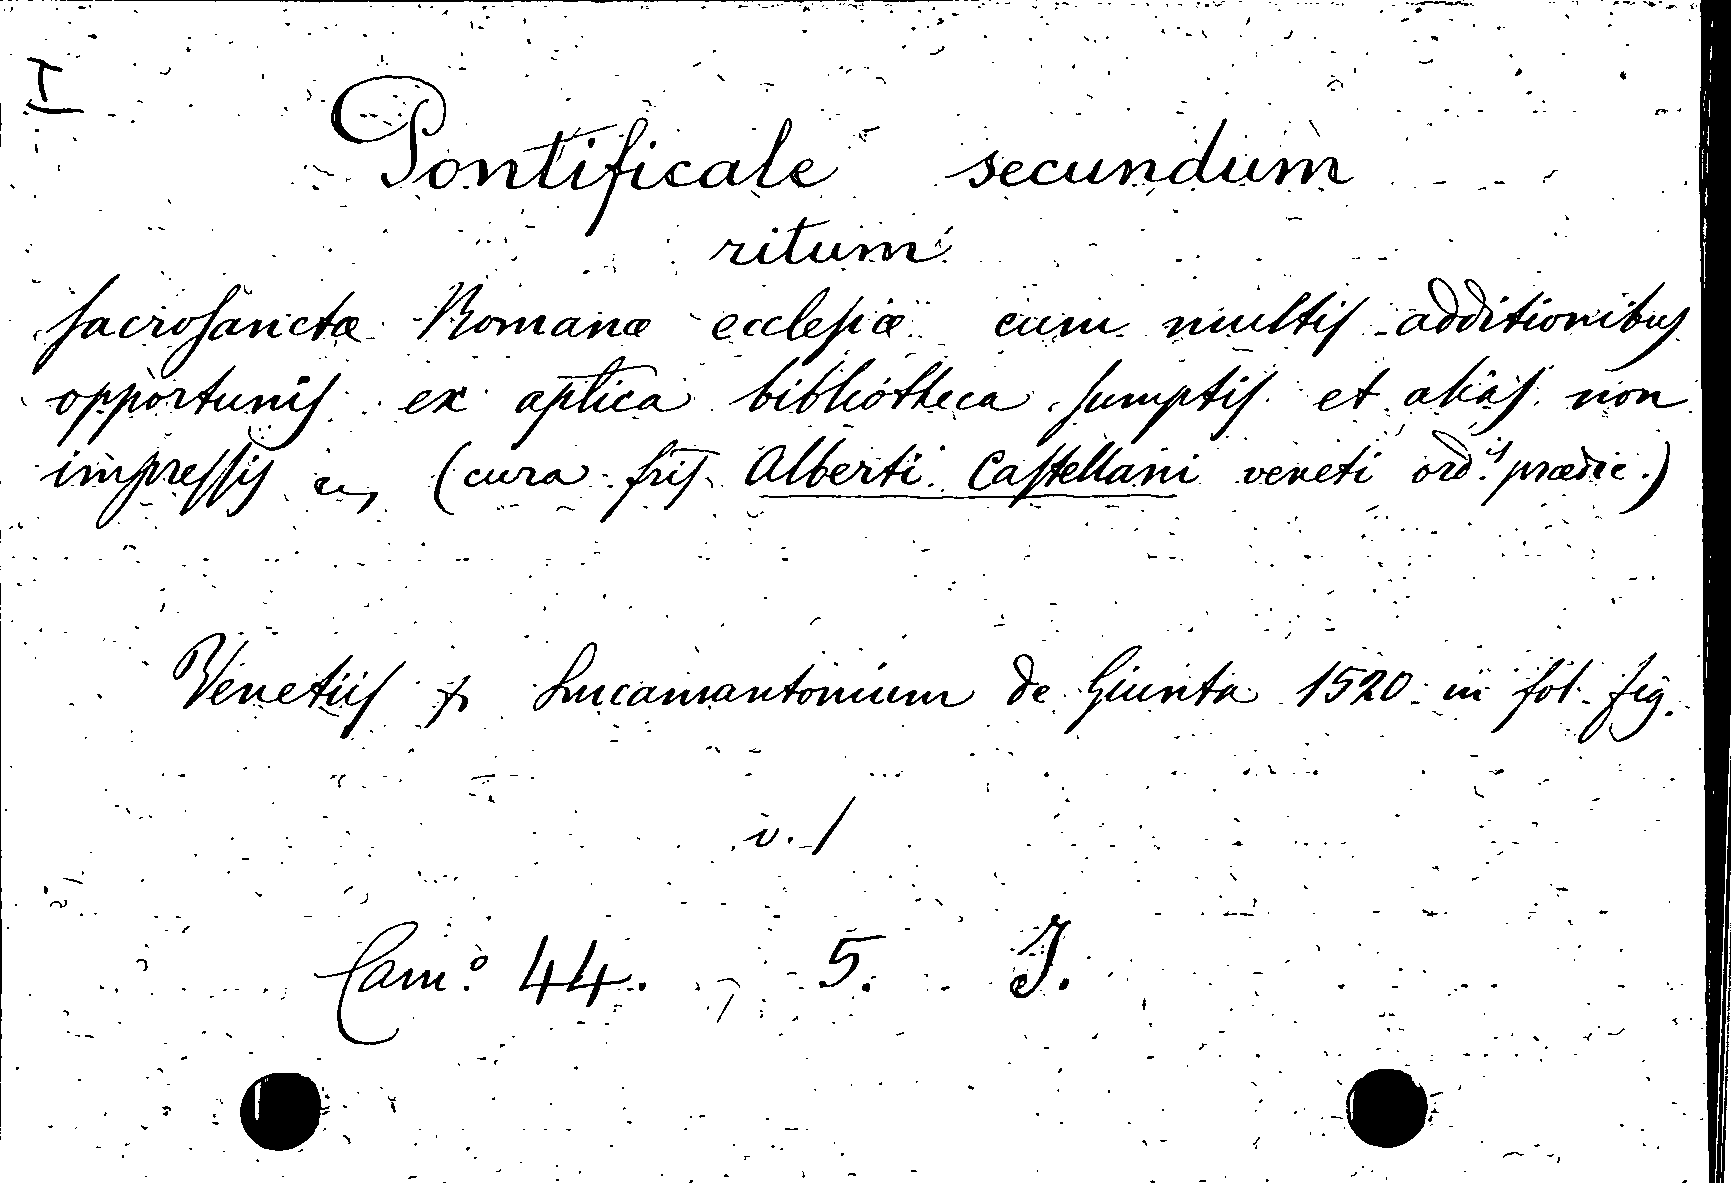 I
Pontificale secundum
ritum
sacrosanctæ Romanæ ecclesiæ cum multis additionibus
opportunis ex aplica bibliotheca sumptis et aliâs non
impressis (cura fris Alberti Castellani veneti ord.is prædic.)
Venetiis p Lucamantonium de Giunta 1520 in fol. fig.
v. 1
Cam.o 44. 5. J.